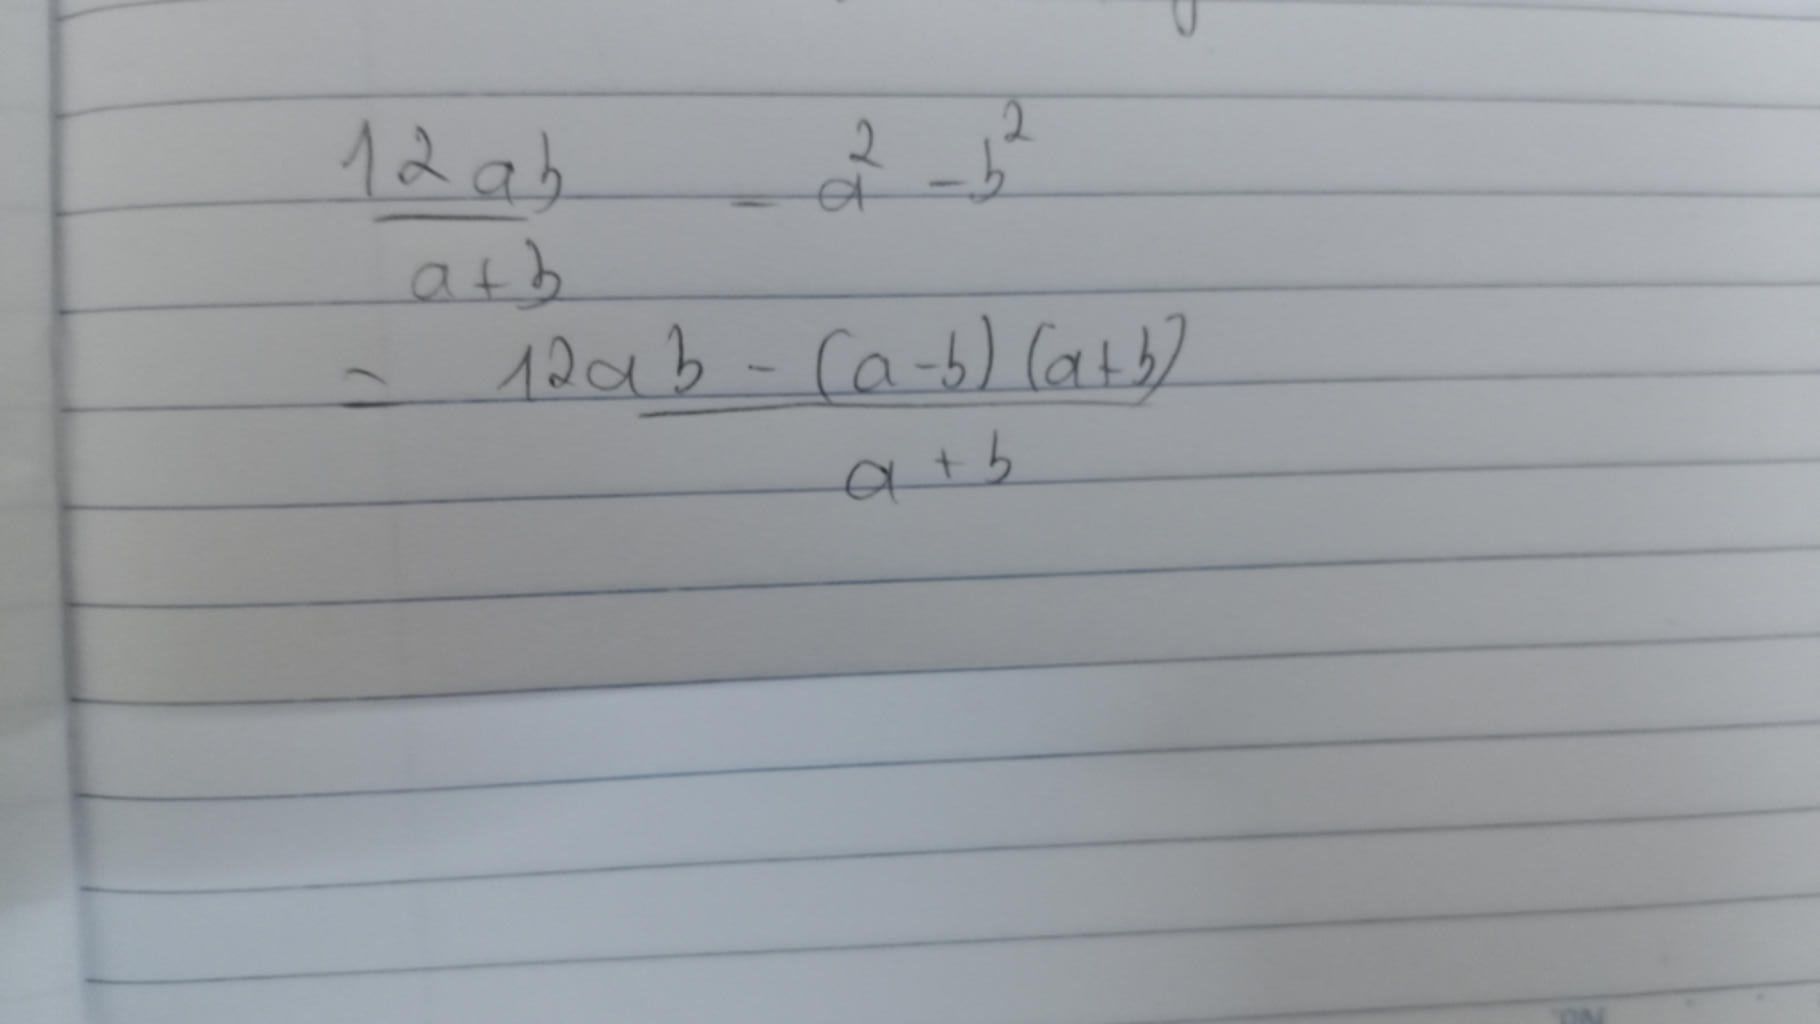 12ab/a+b - a² - b²
= 12ab - (a-b)(a+b)/a+b